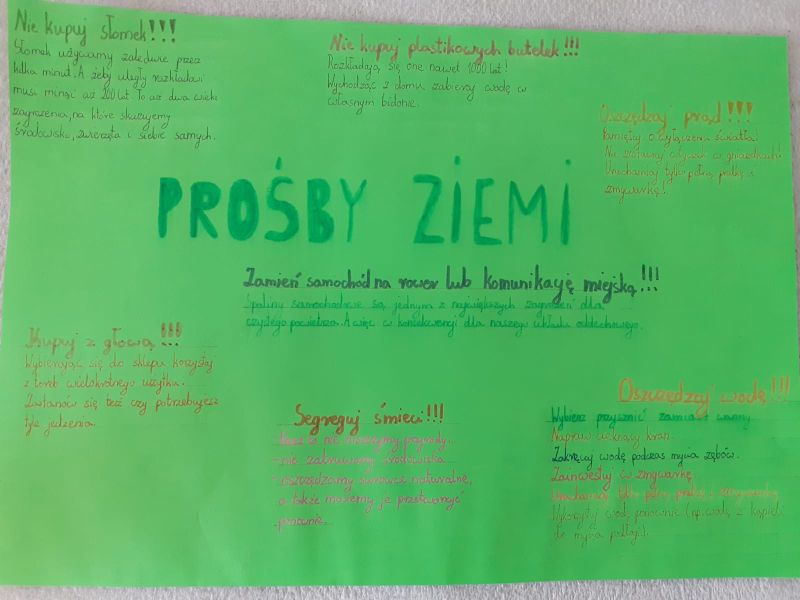 Nie kupuj słomek!!!
Słomek używamy zaledwie przez
kilka minut. A żeby uległy rozkładowi
musi minąć aż 200 lat. To aż dwa wieki
zagrożenia, na które skazujemy
środowisko, zwierzęta i siebie samych.
Nie kupuj plastikowych butelek!!!
Rozkładają się one nawet 1000 lat!
Wychodząc z domu zabieraj wodę w
własnym bidonie.
Oszczędzaj prąd!!!
Pamiętaj o wyłączeniu światła!
Nie zostawiaj wtyczek w gniazdkach!
Uruchamiaj tylko pełną pralkę i
zmywarkę!
PROŚBY ZIEMI
Zamień samochód na rower lub komunikację miejską!!!
Spaliny samochodowe są jednym z największych zagrożeń dla
czystego powietrza. A więc w konsekwencji dla naszego układu oddechowego.
Kupuj z głową!!!
Wybierając się do sklepu korzystaj
z toreb wielokrotnego użytku.
Zastanów się też czy potrzebujesz
tyle jedzenia.
Segreguj śmieci!!!
nie niszczymy przyrody.
- nie zatruwamy środowiska
- oszczędzamy surowce naturalne,
a także możemy je przetworzyć
ponownie.
Oszczędzaj wodę!!!
Wybierz prysznic zamiast wanny.
Napraw cieknący kran.
Zakręcaj wodę podczas mycia zębów.
Zainwestuj w zmywarkę.
Uruchamiaj tylko pełną pralkę i zmywarkę.
Wykorzystuj wodę ponownie (np. wodę z kąpieli
do mycia podłogi).